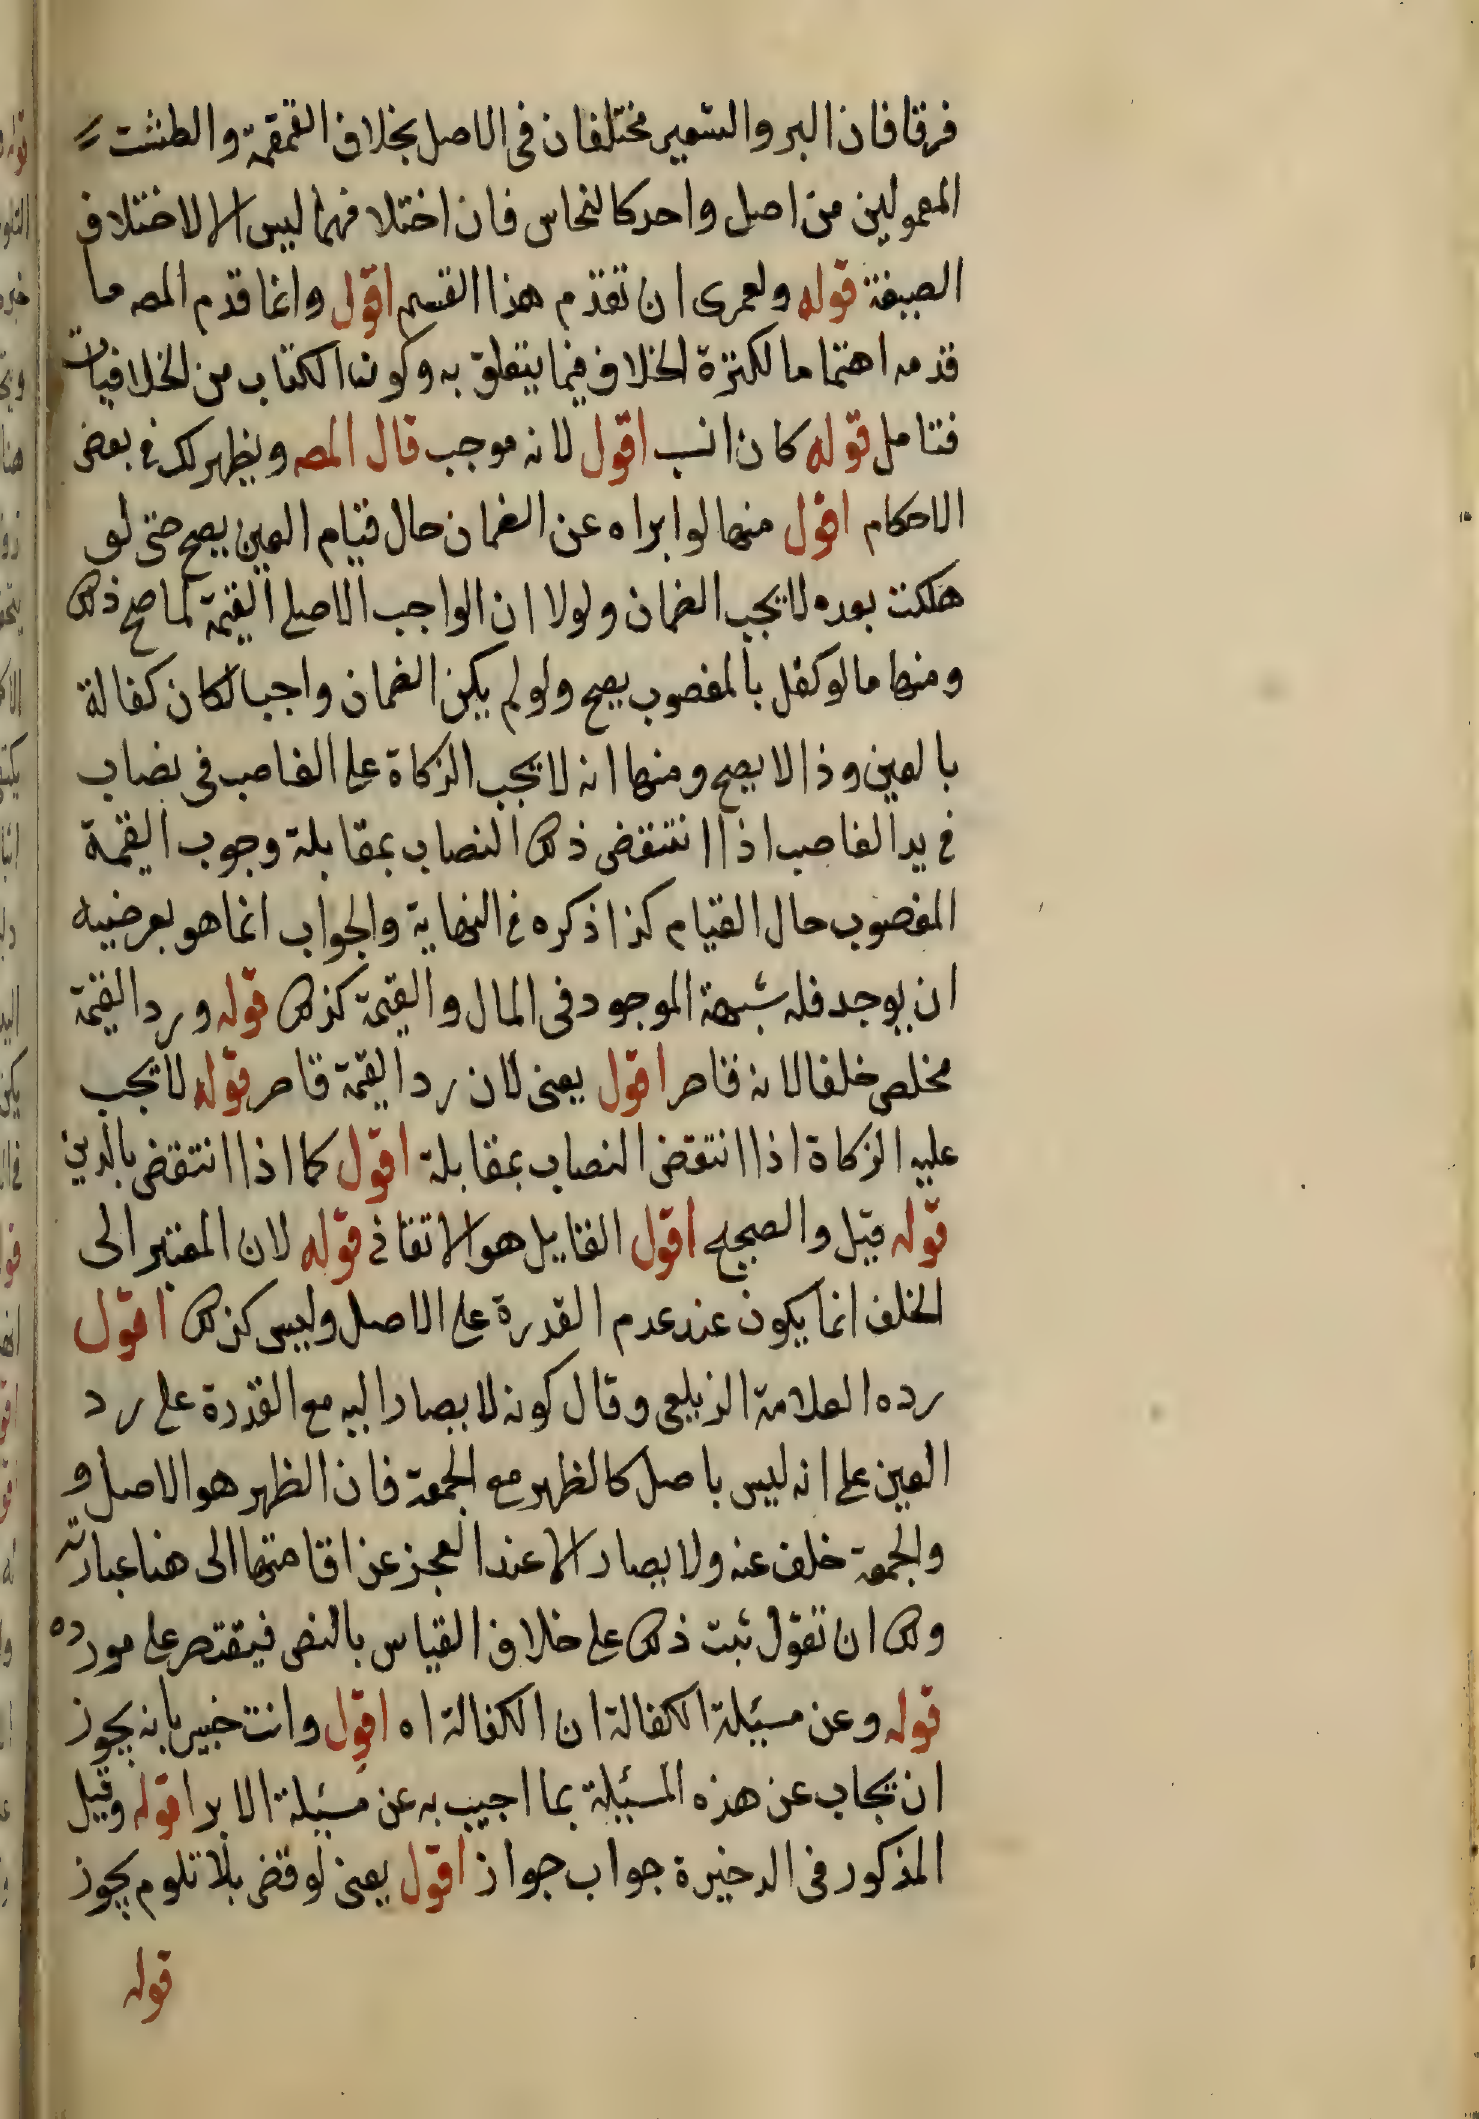 فرقا فان البر والشعير مختلفان فى الاصل بخلاف القمقمة والطشت
المعمولين من اصل واحد كالنحاس فان اختلافهما ليس الا لاختلاف
الصبغة قوله ولعمرى ان تقدم هذا القسم اقول وانما قدم المصه ما
قدمه اهتماما لكثرة الخلاف فيما يتعلق به وكون الكتاب من الخلافيات
فتامل قوله كان انسب اقول لانه موجب قال المصه ويظهر لك فى بعض
الاحكام اقول منها لو ابراه عن الضمان حال قيام العين يصح حتى لو
هلكت بعده لا يجب الضمان ولولا ان الواجب الاصلى القيمة لما صح ذلك
ومنها ما لو كفل بالمغصوب يصح ولو لم يكن الضمان واجبا لكان كفالة
بالعين وذا لا يصح ومنها انه لا تجب الزكاة على الغاصب فى نصاب
فى يد الغاصب اذا انتقض ذلك النصاب بمقابلة وجوب القيمة
المغصوب حال القيام كذا ذكره فى النهاية والجواب انما هو بعرضية
ان يوجد فله شبهة الموجود فى المال والقيمة كذلك قوله ورد القيمة
مخلص خلفا لانه قاصر اقول يعنى لان رد القيمة قاصر قوله لا تجب
عليه الزكاة اذا انتقض النصاب بمقابلة اقول كما اذا انتقض بالدين
قوله قيل والصحيح اقول القايل هو الاتقانى قوله لان المصير الى
الخلف انما يكون عند عدم القدرة على الاصل وليس كذلك اقول
رده العلامة الزيلعى وقال كونه لا يصار اليه مع القدرة على رد
العين على انه ليس باصل كالظهر مع الجمعة فان الظهر هو الاصل و
والجمعة خلف عنه ولا يصار الا عند العجز عن اقامتها الى هنا عبارته
ولك ان تقول ثبت ذلك على خلاف القياس بالنص فيقتصر على مورده
قوله وعن مسئلة الكفالة ان الكفالة اه اقول وانت خبير بانه يجوز
ان يجاب عن هذه المسئلة بما اجيب به عن مسئلة الابرا قوله وقيل
المذكور فى الدخيرة جواب جواز اقول يعنى لو قضى بلا تلوم يجوز
قوله